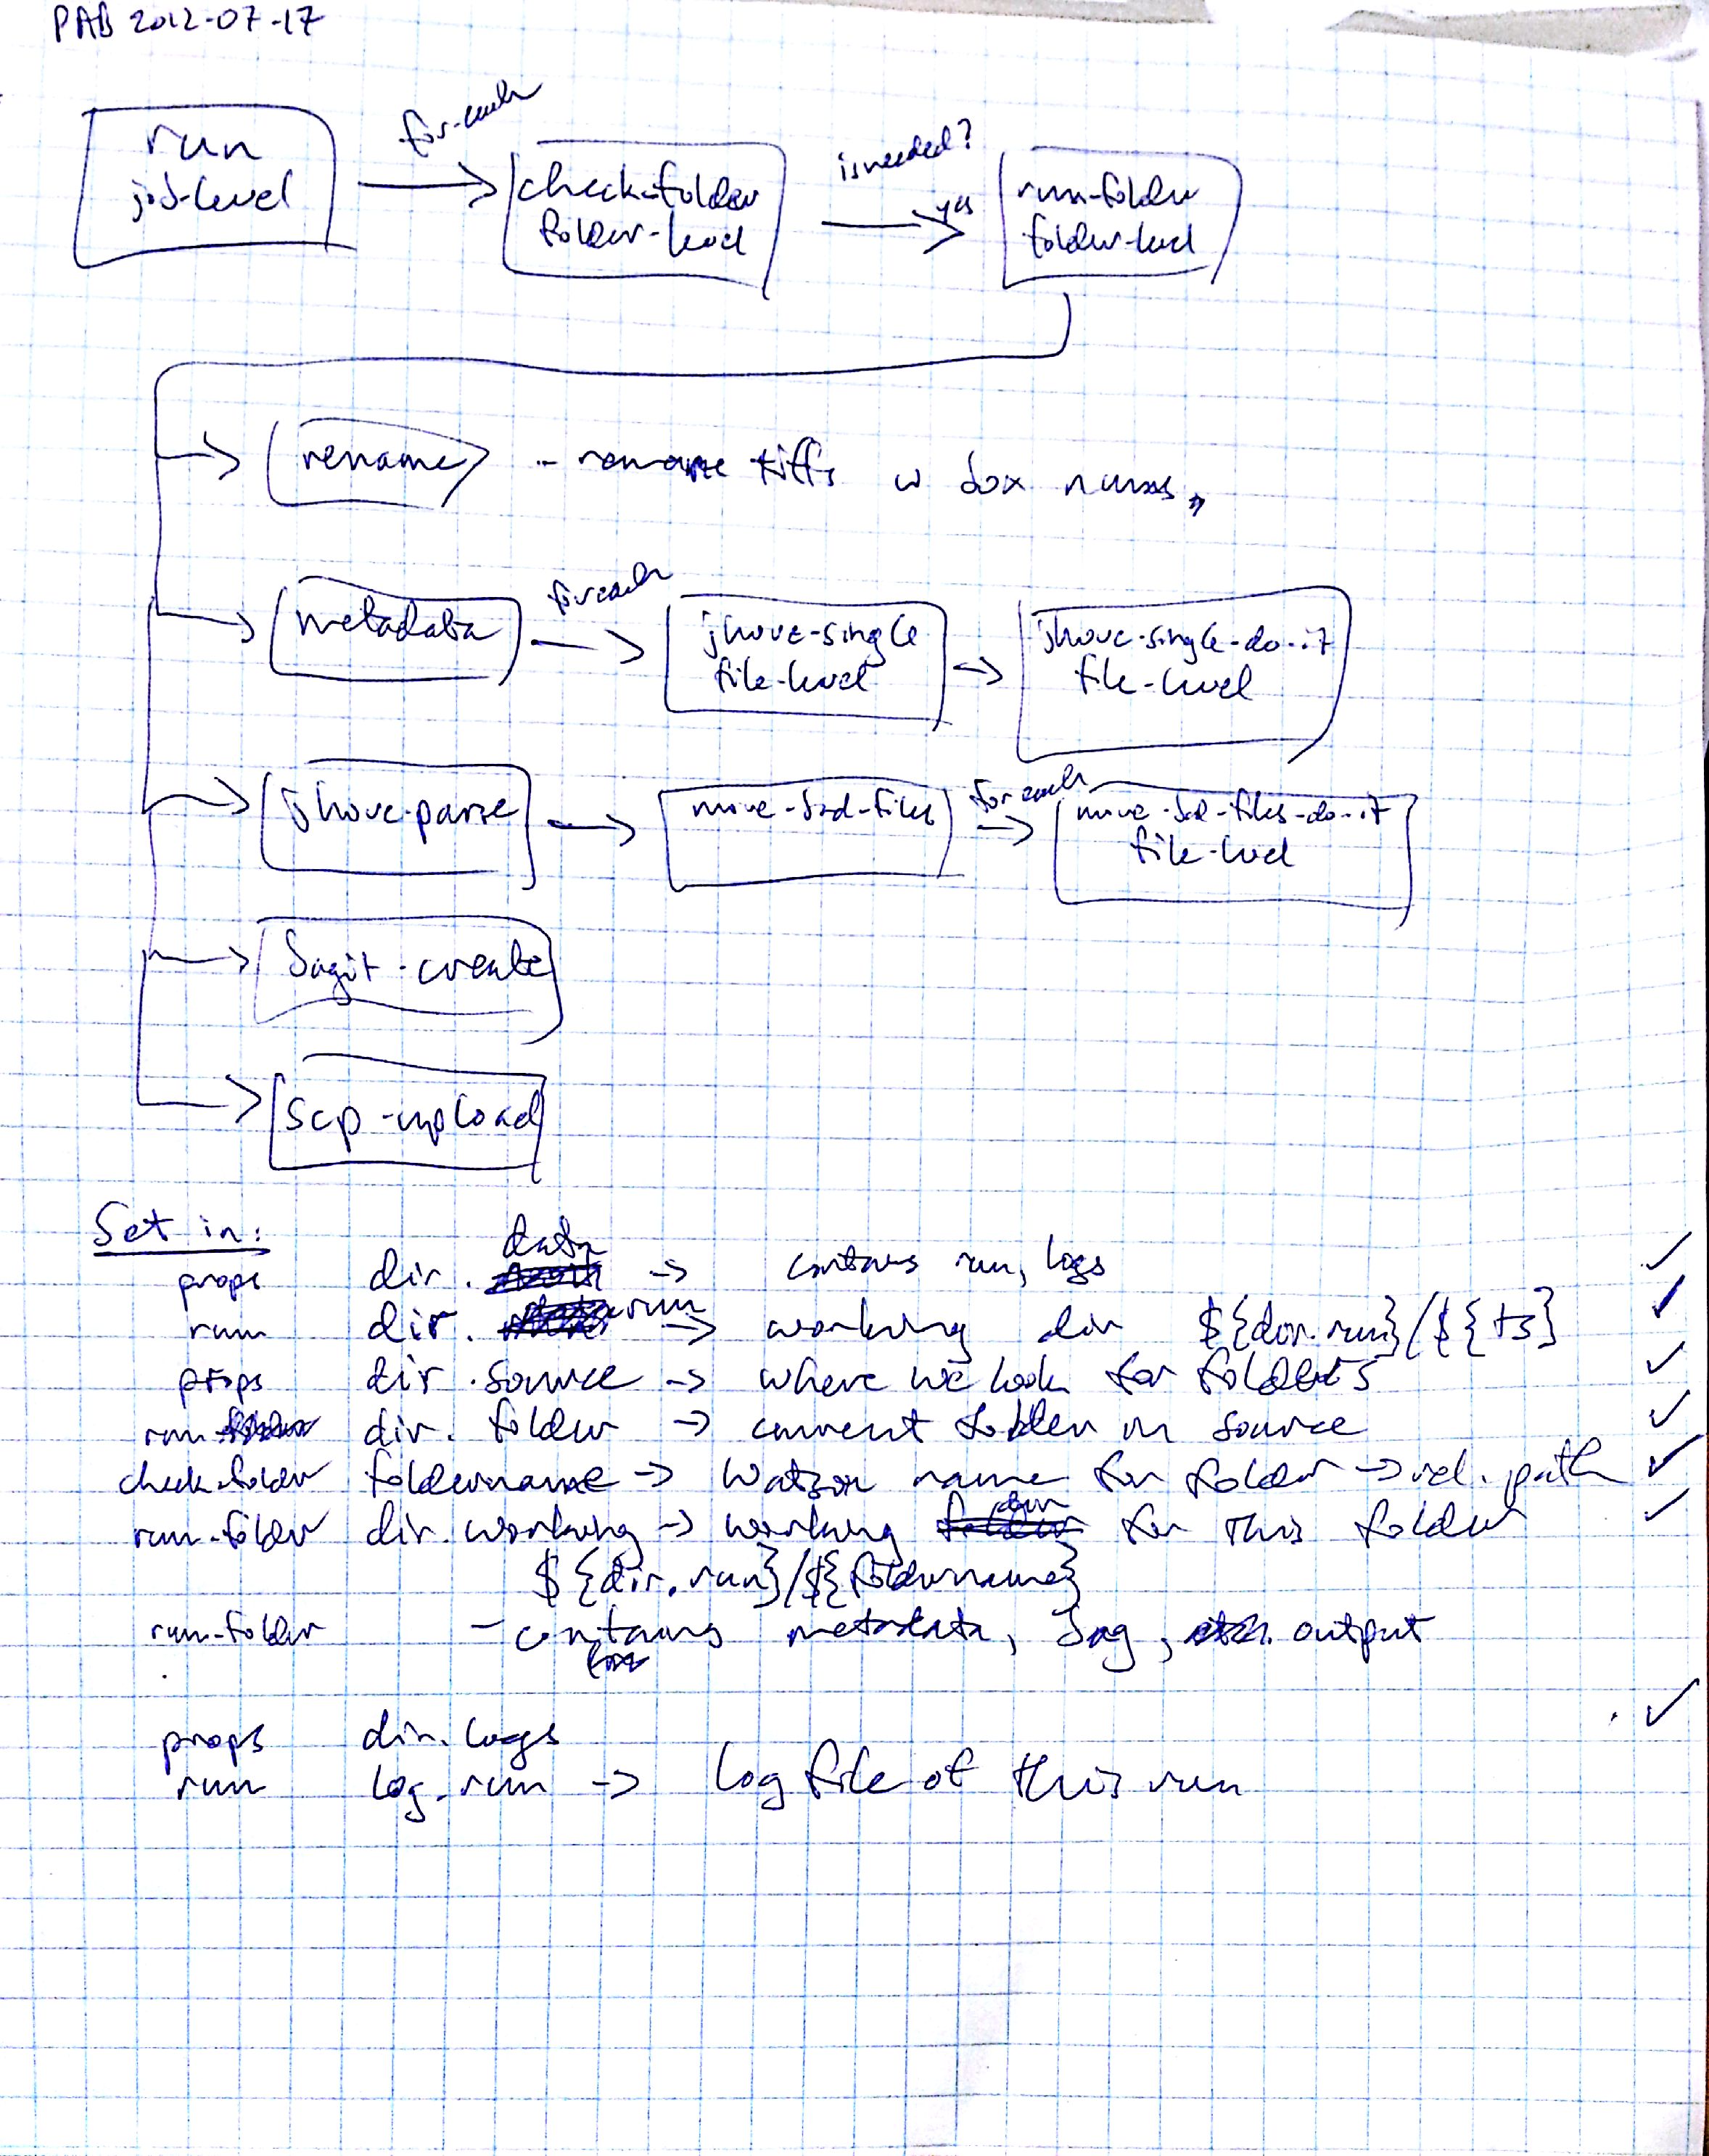 PAB 2012-07-17
run
job-level
for-each
check-folder
folder-level
is needed?
yes
run-folder
folder-level
rename - rename tiffs w box nums,
metadata
for each
jhove-single
file-level
jhove-single-do-it
file-level
jhove-parse
move-bad-files
for each
move-bad-files-do-it
file-level
bagit-create
scp-upload
Set in:
props dir. data → contains run, logs ✓
run dir. run → working dir ${dir.run}/${ts} ✓
props dir.source → where we look for folders ✓
run dir.folder → current folder in source ✓
check-folder foldername → Watson name for folder → rel. path ✓
run-folder dir.working → working dir for this folder ✓
${dir.run}/${foldername}
run-folder - contains metadata, bag, output
props dir.logs ✓
run log.run → log file of this run